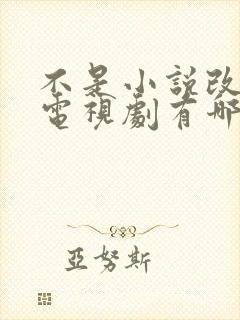 不是小説改
電視劇有哪
亞努斯